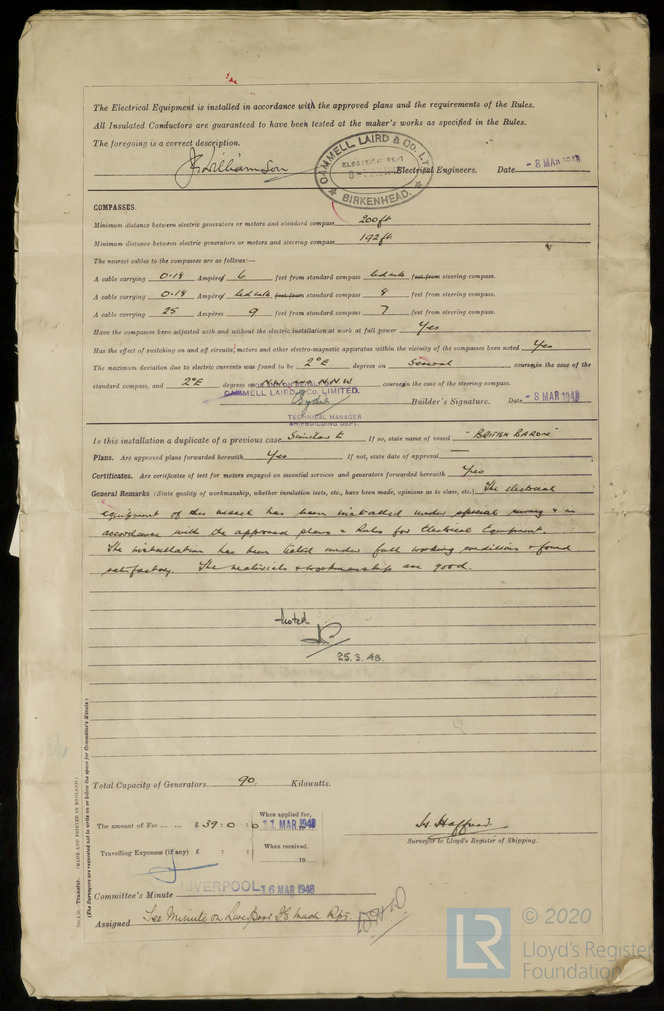 The Electrical Equipment is installed in accordance with the approved plans and the requirements of the Rules.
All Insulated Conductors are guaranteed to have been tested at the maker's works as specified in the Rules.
The foregoing is a correct description.
J Williamson CAMMELL LAIRD & Co. LTD BIRKENHEAD. Electrical Engineers. Date - 8 MAR 1948
COMPASSES.
Minimum distance between electric generators or motors and standard compass 200 ft
Minimum distance between electric generators or motors and steering compass 192 ft
The nearest cables to the compasses are as follows:—
A cable carrying 0.18 Ampères 6 feet from standard compass led into feet from steering compass.
A cable carrying 0.18 Ampères led into feet from standard compass 8 feet from steering compass.
A cable carrying 25 Ampères 9 feet from standard compass 7 feet from steering compass.
Have the compasses been adjusted with and without the electric installation at work at full power Yes
Has the effect of switching on and off circuits, motors and other electro-magnetic apparatus within the vicinity of the compasses been noted Yes
The maximum deviation due to electric currents was found to be 2°E degrees on Several course in the case of the
standard compass, and 2°E degrees on N.W. AND N.N.W course in the case of the steering compass.
CAMMELL LAIRD & Co. LIMITED.
Builder's Signature. Date - 8 MAR 1948
TECHNICAL MANAGER
SHIPBUILDING DEPT.
Is this installation a duplicate of a previous case Similar to If so, state name of vessel "BRITISH BARON"
Plans. Are approved plans forwarded herewith Yes If not, state date of approval —
Certificates. Are certificates of test for motors engaged on essential services and generators forwarded herewith Yes
General Remarks (State quality of workmanship, whether insulation tests, etc., have been made, opinions as to class, etc.) The electrical
equipment of this vessel has been installed under special survey & in
accordance with the approved plans & Rules for Electrical Equipment.
The installation has been tested under full working conditions & found
satisfactory. The materials & workmanship are good.
Noted
25.3.48.
Total Capacity of Generators 90 Kilowatts.
The amount of Fee ... ... £ 39 : 0 : 0 When applied for, 11 MAR 1948
Travelling Expenses (if any) £ : : When received, 19
Surveyor to Lloyd's Register of Shipping.
Committee's Minute LIVERPOOL 16 MAR 1948
Assigned See Minute on Liverpool F.E. Mach Rpt
Transfer. (MADE AND PRINTED IN ENGLAND.)
(The Surveyors are requested not to write on or below the space for Committee's Minute.)
LR © 2020
Lloyd's Register
Foundation